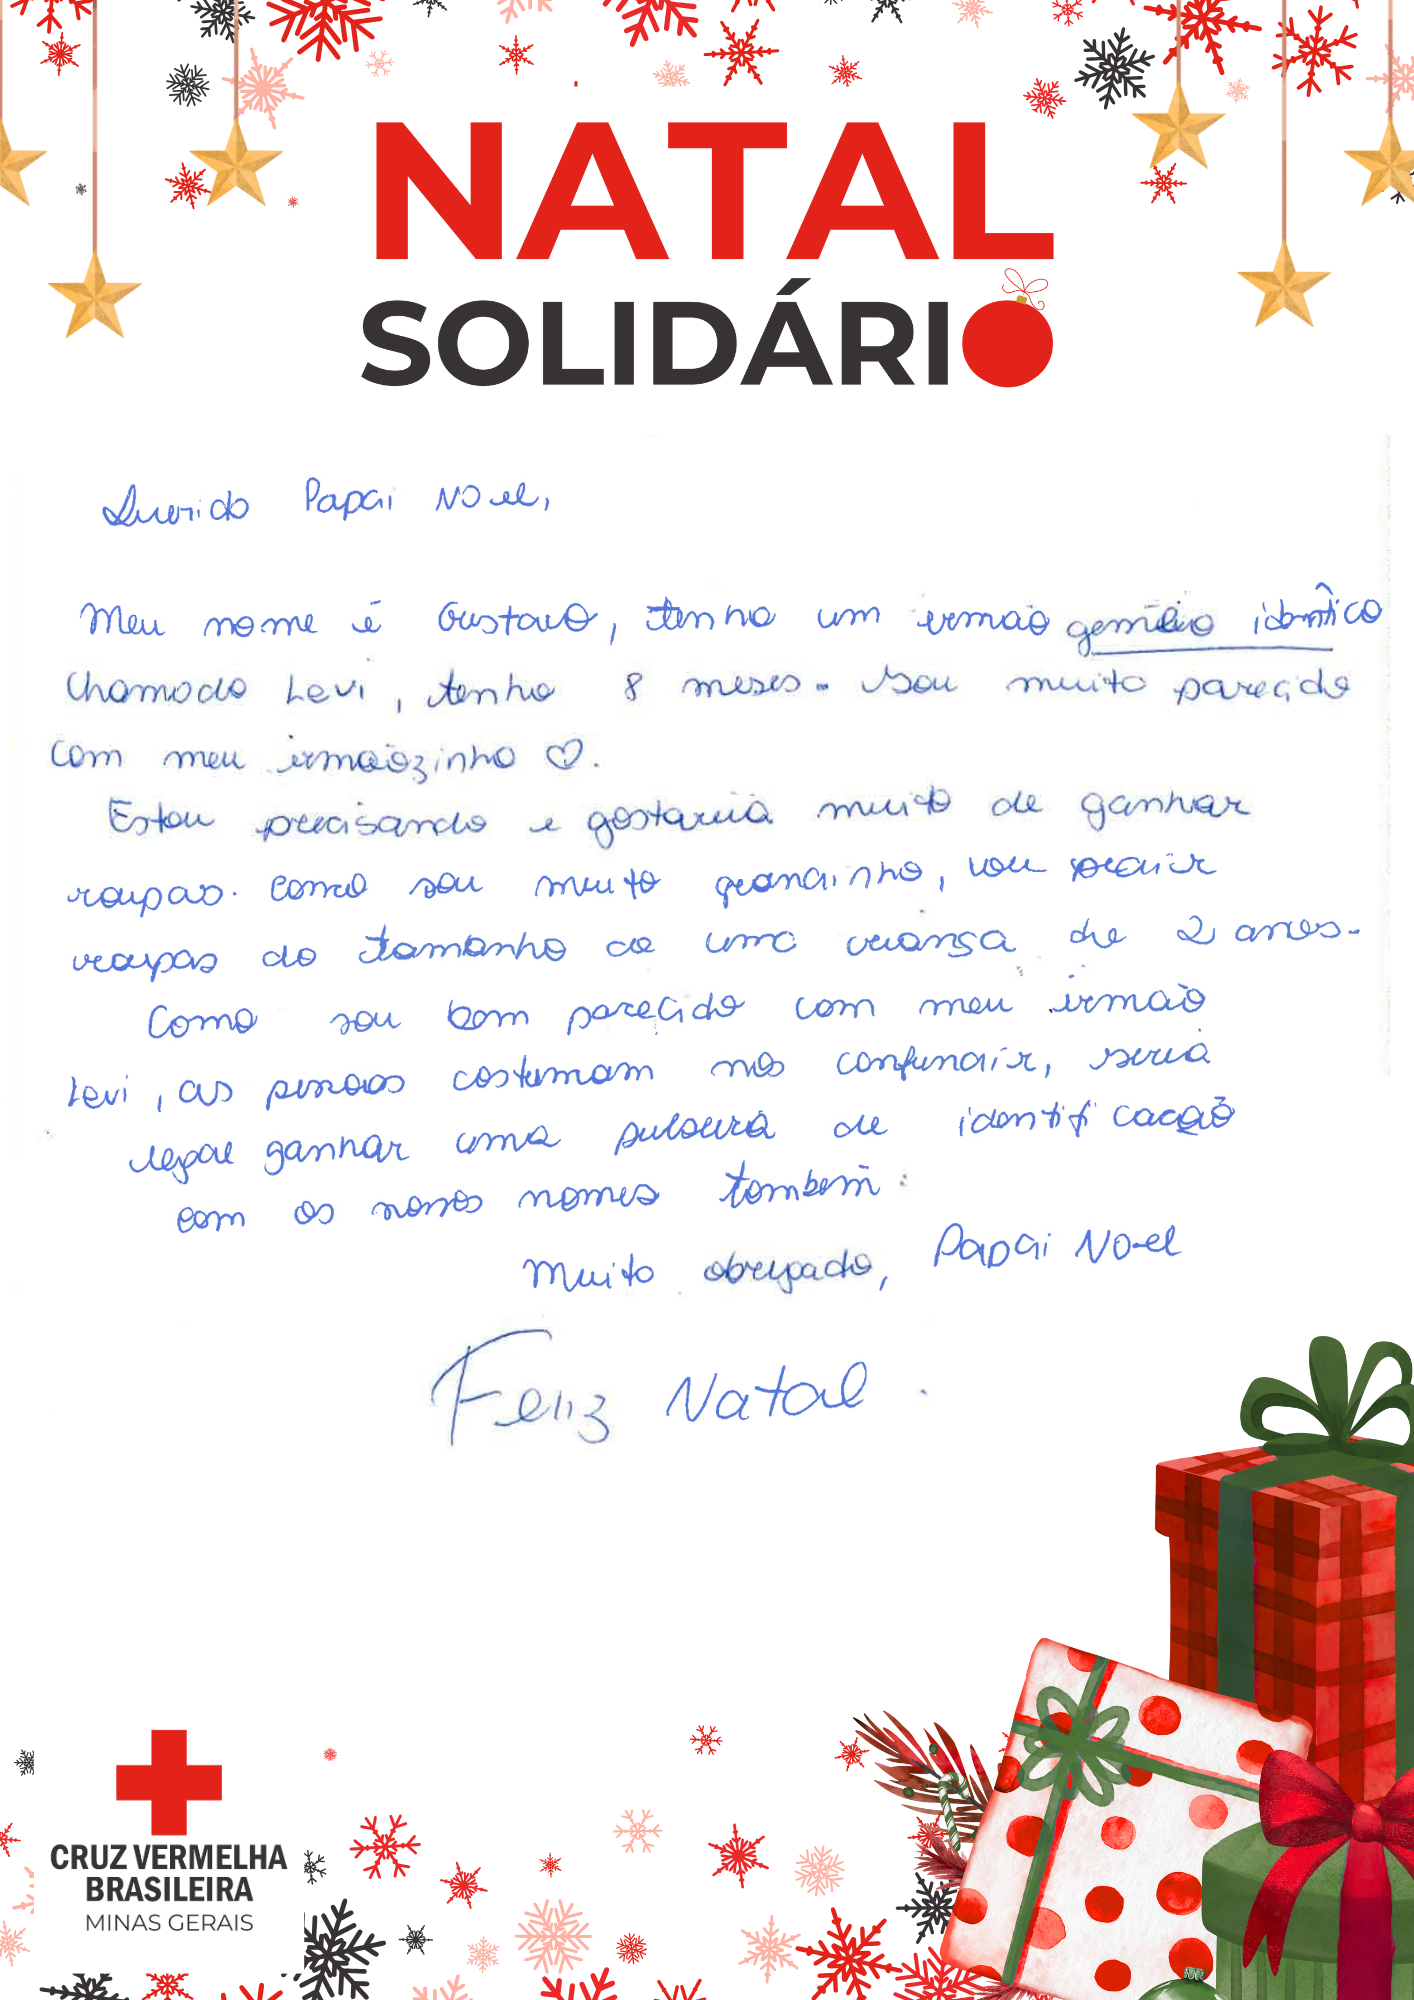 NATAL
SOLIDÁRIO
Querido Papai Noel,
Meu nome é Gustavo, tenho um irmão gemêio idêntico
Chamado Levi, tenho 8 meses. Sou muito parecido
com meu irmãozinho ♡.
Estou precisando e gostaria muito de ganhar
roupas. Como sou muito grandinho, vou pedir
roupas do tamanho de uma criança de 2 anos.
Como sou bem parecido com meu irmão
Levi, as pessoas costumam nos confundir, seria
legal ganhar uma pulseira de identificação
com os nossos nomes também.
Muito obrigado, Papai Noel
Feliz Natal.
CRUZ VERMELHA
BRASILEIRA
MINAS GERAIS